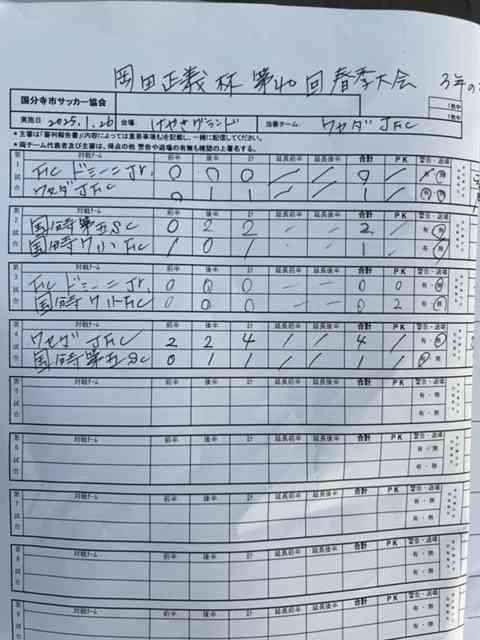 岡田正義杯 第40回 春季大会 3年の
国分寺市サッカー協会
実施日 2025.1.26 会場: けやきグランド 当番チーム: ワセダJFC
＊主審は「審判報告書」内容によっては重要事項も記載し、一緒に配信してください。
＊両チーム代表者及び主審は、得点の他 警告や退場の有無も確認の上署名する。
第1試合 対戦チーム 前半 後半 計 延長前半 延長後半 合計 PK 警告・退場
FC ドミーニ Jr. 0 0 0 / / 0 / 有・無
ワセダ JFC 0 1 1 / / 1 / 有・無
第2試合 対戦チーム 前半 後半 計 延長前半 延長後半 合計 PK 警告・退場
国分寺第五SC 0 2 2 - - 2 / 有・無
国分寺ワルトFC 1 0 1 - - 1 / 有・無
第3試合 対戦チーム 前半 後半 計 延長前半 延長後半 合計 PK 警告・退場
FC ドミーニ Jr. 0 0 0 - - 0 0 有・無
国分寺ワルトFC 0 0 0 - - 0 2 有・無
第4試合 対戦チーム 前半 後半 計 延長前半 延長後半 合計 PK 警告・退場
ワセダ JFC 2 2 4 / / 4 / 有・無
国分寺第五SC 0 1 1 / / 1 / 有・無
第5試合 対戦チーム 前半 後半 計 延長前半 延長後半 合計 PK 警告・退場
有・無
第6試合 対戦チーム 前半 後半 計 延長前半 延長後半 合計 PK 警告・退場
有・無
第7試合 対戦チーム 前半 後半 計 延長前半 延長後半 合計 PK 警告・退場
有・無
第8試合 対戦チーム 前半 後半 計 延長前半 延長後半 合計 PK 警告・退場
有・無
第9試 対戦チーム 前半 後半 計 延長前半 延長後半 合計 PK 警告・退場
有・無